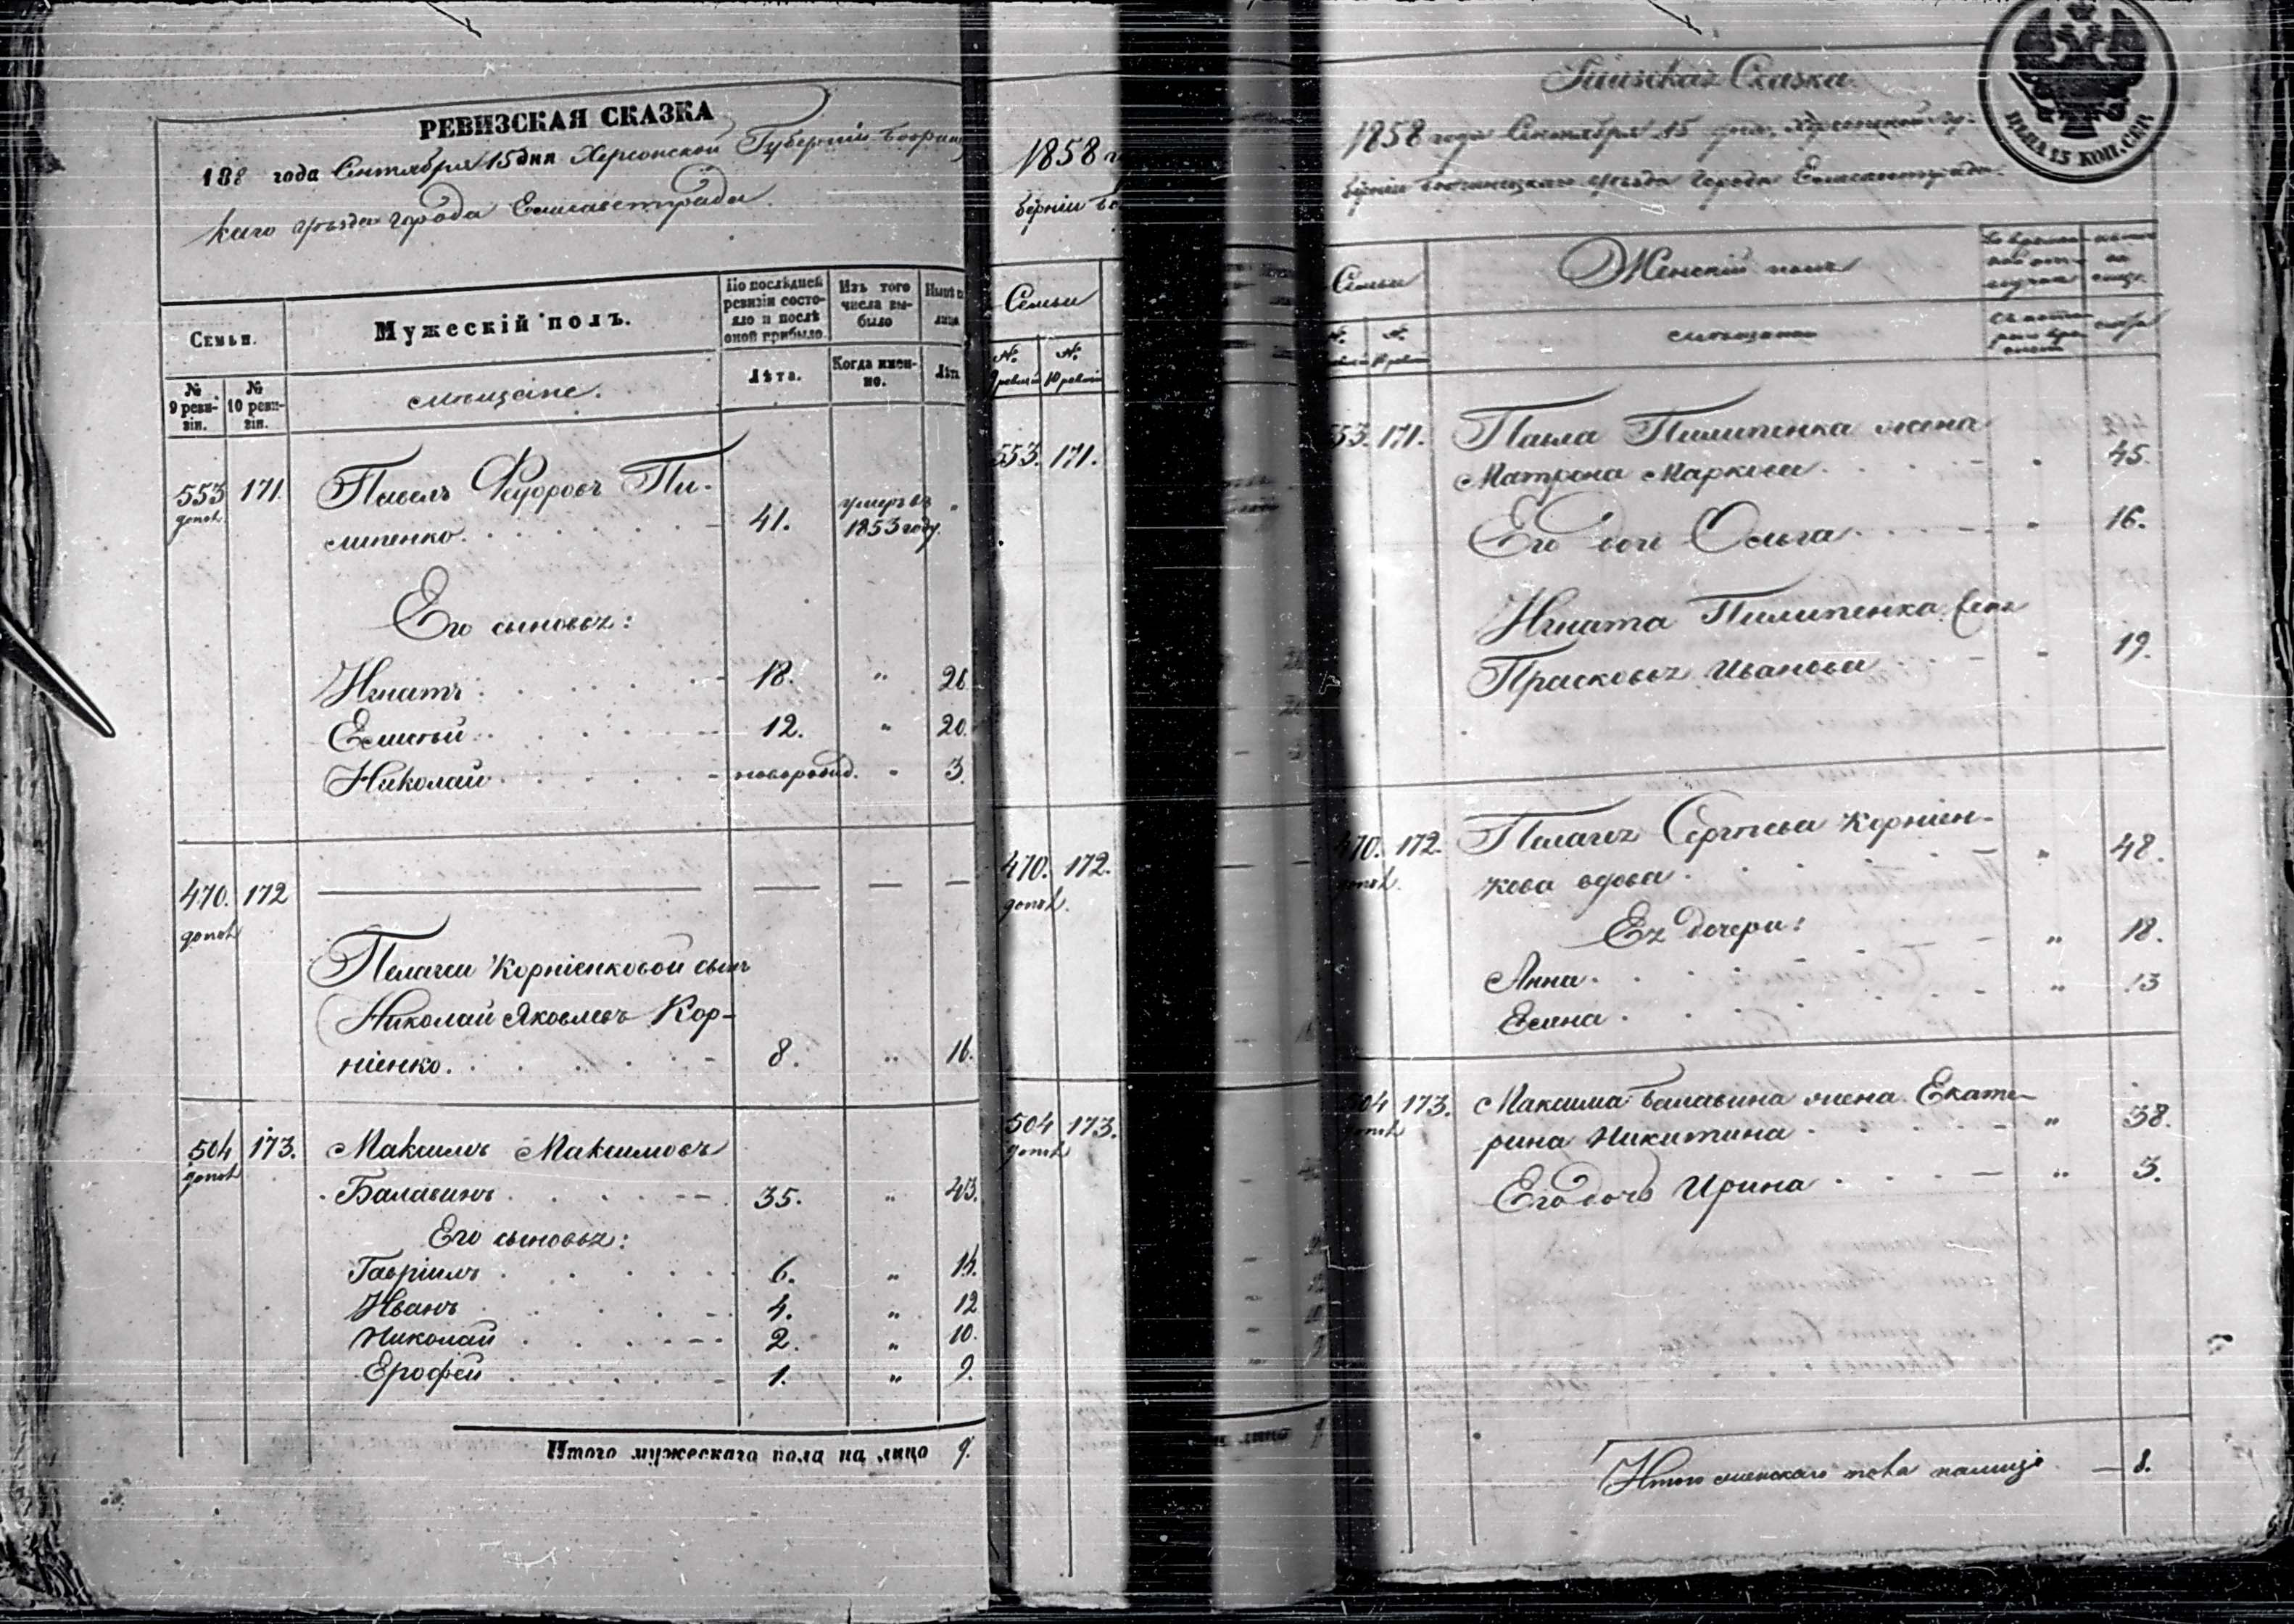 РЕВИЗСКАЯ СКАЗКА
188 года Сентября 15 дня Херсонской Губерніи Бобринец
каго уѣзда города Елисаветграда.
Семьи.
Мужескій полъ.
По послѣдней ревизіи состояло и послѣ оной прибыло.
Изъ того числа выбыло
Нынѣ
лицо
№ 9 ревизіи.
№ 10 ревизіи.
мѣщане.
Лѣта.
Когда именно.
Лѣт
553 171. Павелъ Федоровъ Пи-
допол. липенко. 41. умеръ въ 1853 году. "
Его сыновья:
Игнатъ. 18. " 26
Елисѣй. 12. " 20.
Николай. новорожд. " 3.
470. 172
допол
Пелагеи Корніенковой сынъ
Николай Яковлевъ Кор-
ніенко. 8. " 16.
504 173. Максимъ Максимовъ
допол Балавинъ. 35. " 43.
Его сыновья:
Гавріилъ. 6. " 14.
Иванъ. 4. " 12
Николай. 2. " 10.
Ерофей. 1. " 9.
Итого мужескаго пола на лицо 9.
1858 го
берніи Бо
Семьи
№ 9 ревизіи
№ 10 ревизіи
553. 171.
470. 172.
допол.
504 173.
допол
Ревизская Сказка.
1858 года Сентября 15 дня, Херсонской Гу-
берніи Бобринецкаго уѣзда города Елисаветграда.
Семьи
Женскій полъ
№
№ 10 ревизіи
мѣщанки
лѣта
553. 171. Павла Пилипенка жена
Матрона Маркова. " 45.
Его дочь Ольга. " 16.
Игната Пилипенка жена
Прасковья Иванова " 19.
470. 172. Пелагея Сергѣева Корніен-
допол. кова вдова. " 48.
Ея дочери:
Анна. " 18.
Елена. " 13
504 173. Максима Балавина жена Екате-
допол рина Никитина " 38.
Его дочь Ирина " 3.
Итого женскаго пола налицо 8.
ЦѢНА 15 КОП. СЕР.